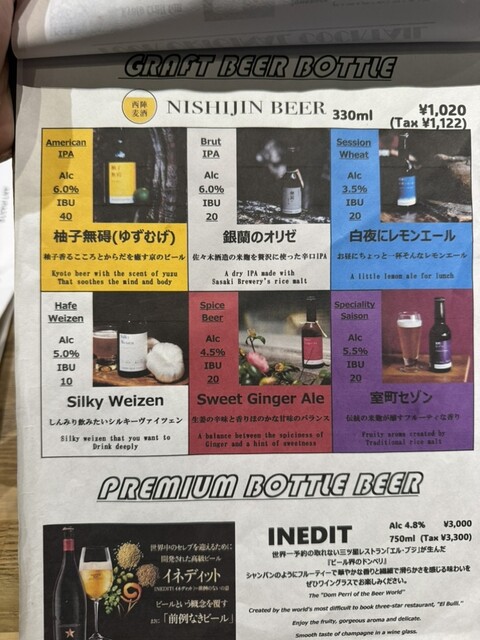 GRAFT BEER BOTTLE
西陣
麦酒
NISHIJIN BEER 330ml ¥1,020
(Tax ¥1,122)
American
IPA
Alc
6.0%
IBU
40
柚子無碍(ゆずむげ)
柚子香るこころとからだを癒す京のビール
Kyoto beer with the scent of yuzu
That soothes the mind and body
Brut
IPA
Alc
6.0%
IBU
20
銀蘭のオリゼ
佐々木酒造の米麹を贅沢に使った辛口IPA
A dry IPA made with
Sasaki Brewery's rice malt
Session
Wheat
Alc
3.5%
IBU
20
白夜にレモンエール
お昼にちょっと一杯そんなレモンエール
A little lemon ale for lunch
Hafe
Weizen
Alc
5.0%
IBU
10
Silky Weizen
しんみり飲みたいシルキーヴァイツェン
Silky weizen that you want to
Drink deeply
Spice
Beer
Alc
4.5%
IBU
20
Sweet Ginger Ale
生姜の辛味と香りほのかな甘味のバランス
A balance between the spiciness of
Ginger and a hint of sweetness
Speciality
Saison
Alc
5.5%
IBU
20
室町セゾン
伝統の米麹が醸すフルーティな香り
Fruity aroma created by
Traditional rice malt
PREMIUM BOTTLE BEER
世界中のセレブを迎えるために
開発された高級ビール
イネディット
ビールという概念を覆す
まさに「前例なきビール」
INEDIT Alc 4.8% ¥3,000
750ml (Tax ¥3,300)
世界一予約の取れない三ツ星レストラン「エル・ブジ」が生んだ
「ビール界のドンペリ」
シャンパンのようにフルーティーで華やかな香りと繊細で滑らかさを感じる味わいを
ぜひワイングラスでお楽しみください。
The "Dom Perri of the Beer World"
Created by the world's most difficult to book three-star restaurant, "El Bulli."
Enjoy the fruity, gorgeous aroma and delicate.
Smooth taste of champagne in a wine glass.